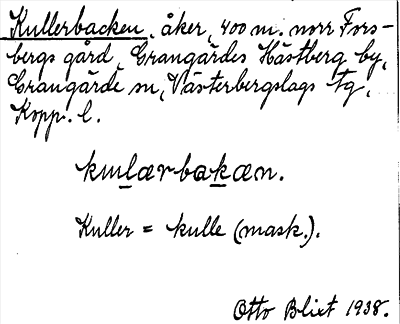 Kullerbacken, åker, 400 m. norr Fors-
bergs gård, Grangärdes Hästberg by,
Grangärde sn, Västerbergslags tg,
Kopp. l.
kɯlærbakæn.
Kuller = kulle (mask.).
Otto Blixt 1938.